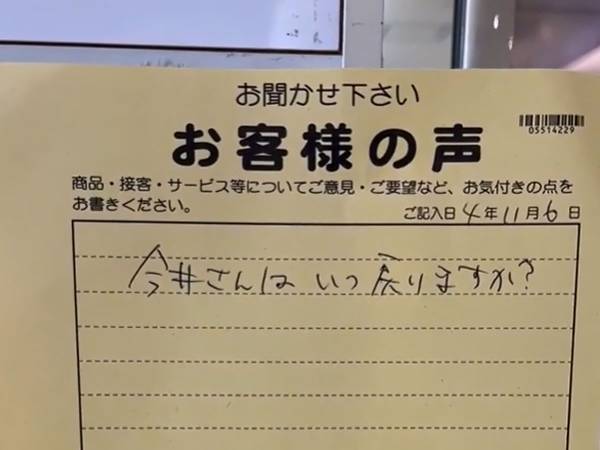 お聞かせ下さい
お客様の声
05514229
商品・接客・サービス等についてご意見・ご要望など、お気付きの点を
お書きください。
ご記入日 4年11月6日
今井さんは いつ戻りますか?